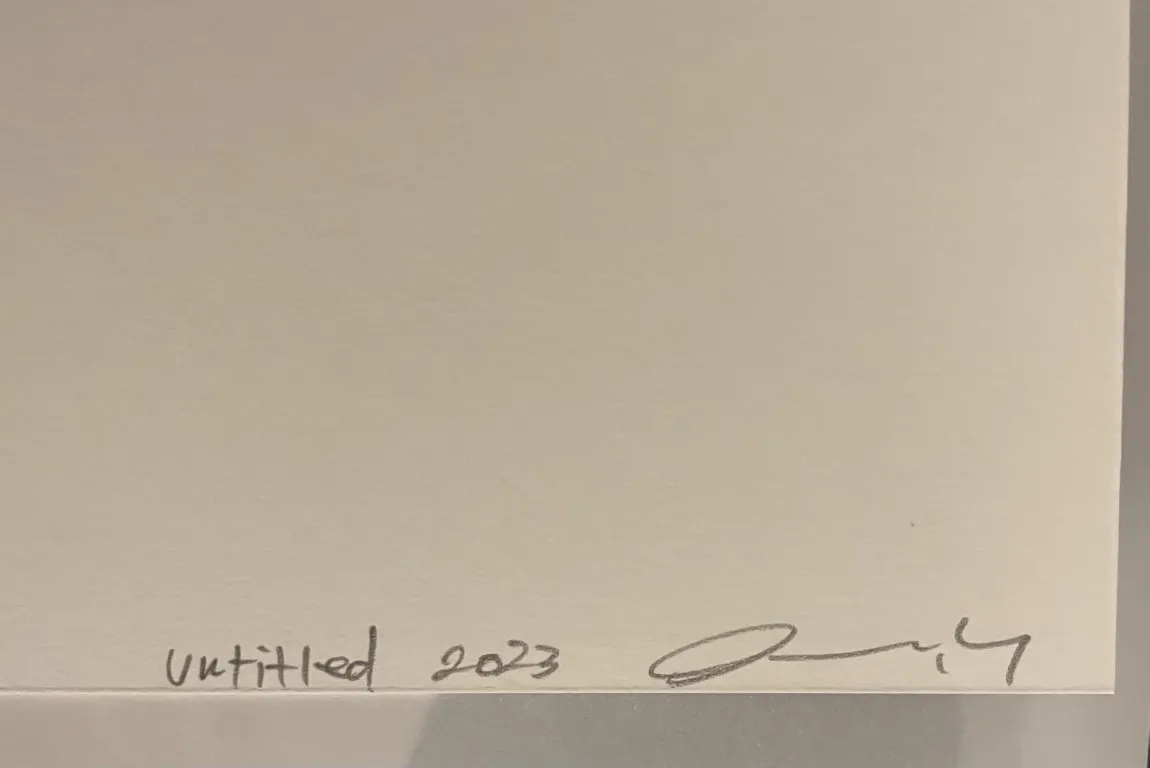 untitled 2023